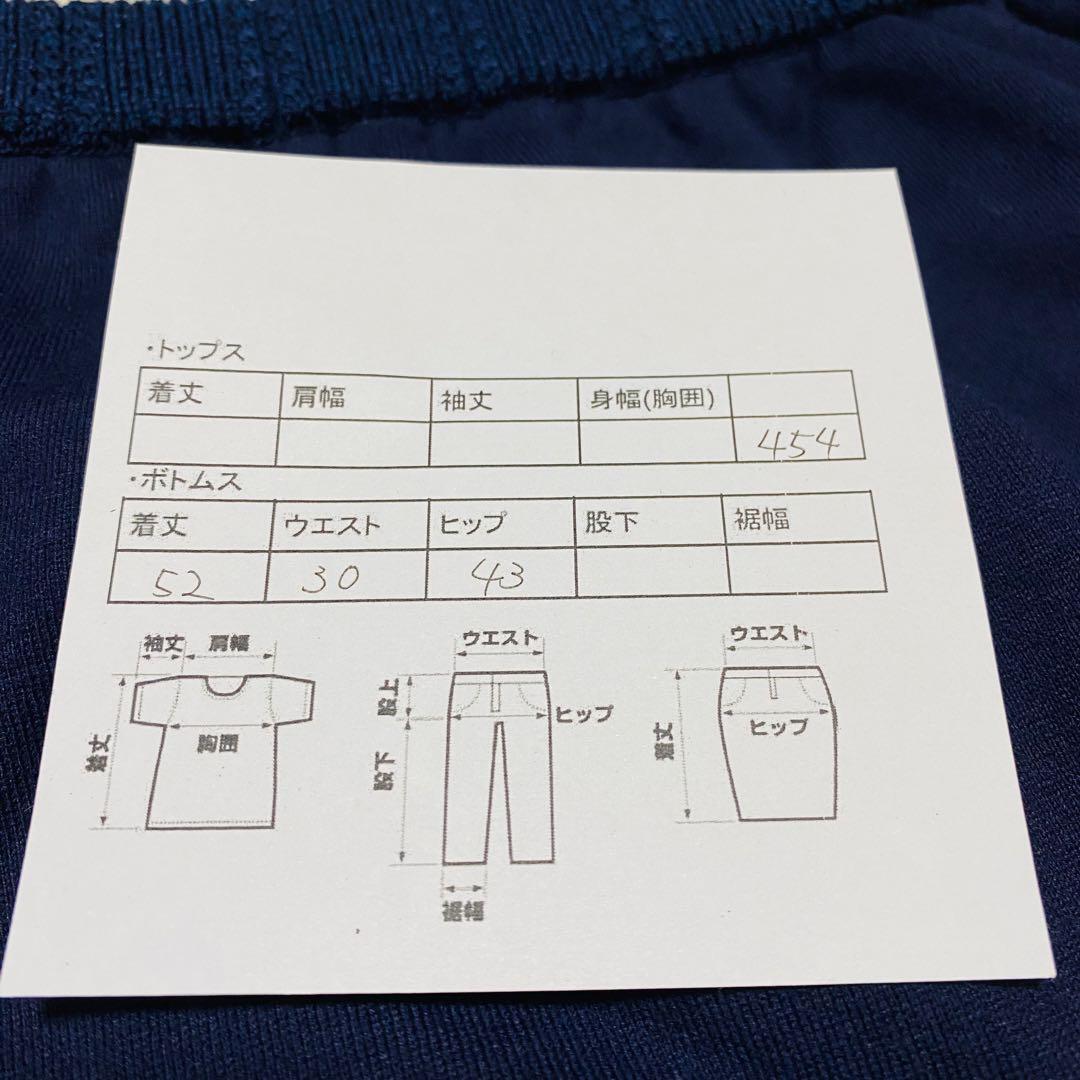 ・トップス
着丈 肩幅 袖丈 身幅(胸囲)
454
・ボトムス
着丈 ウエスト ヒップ 股下 裾幅
52 30 43
袖丈 肩幅
着丈
胸囲
ウエスト
股上
ヒップ
股下
裾幅
ウエスト
着丈
ヒップ